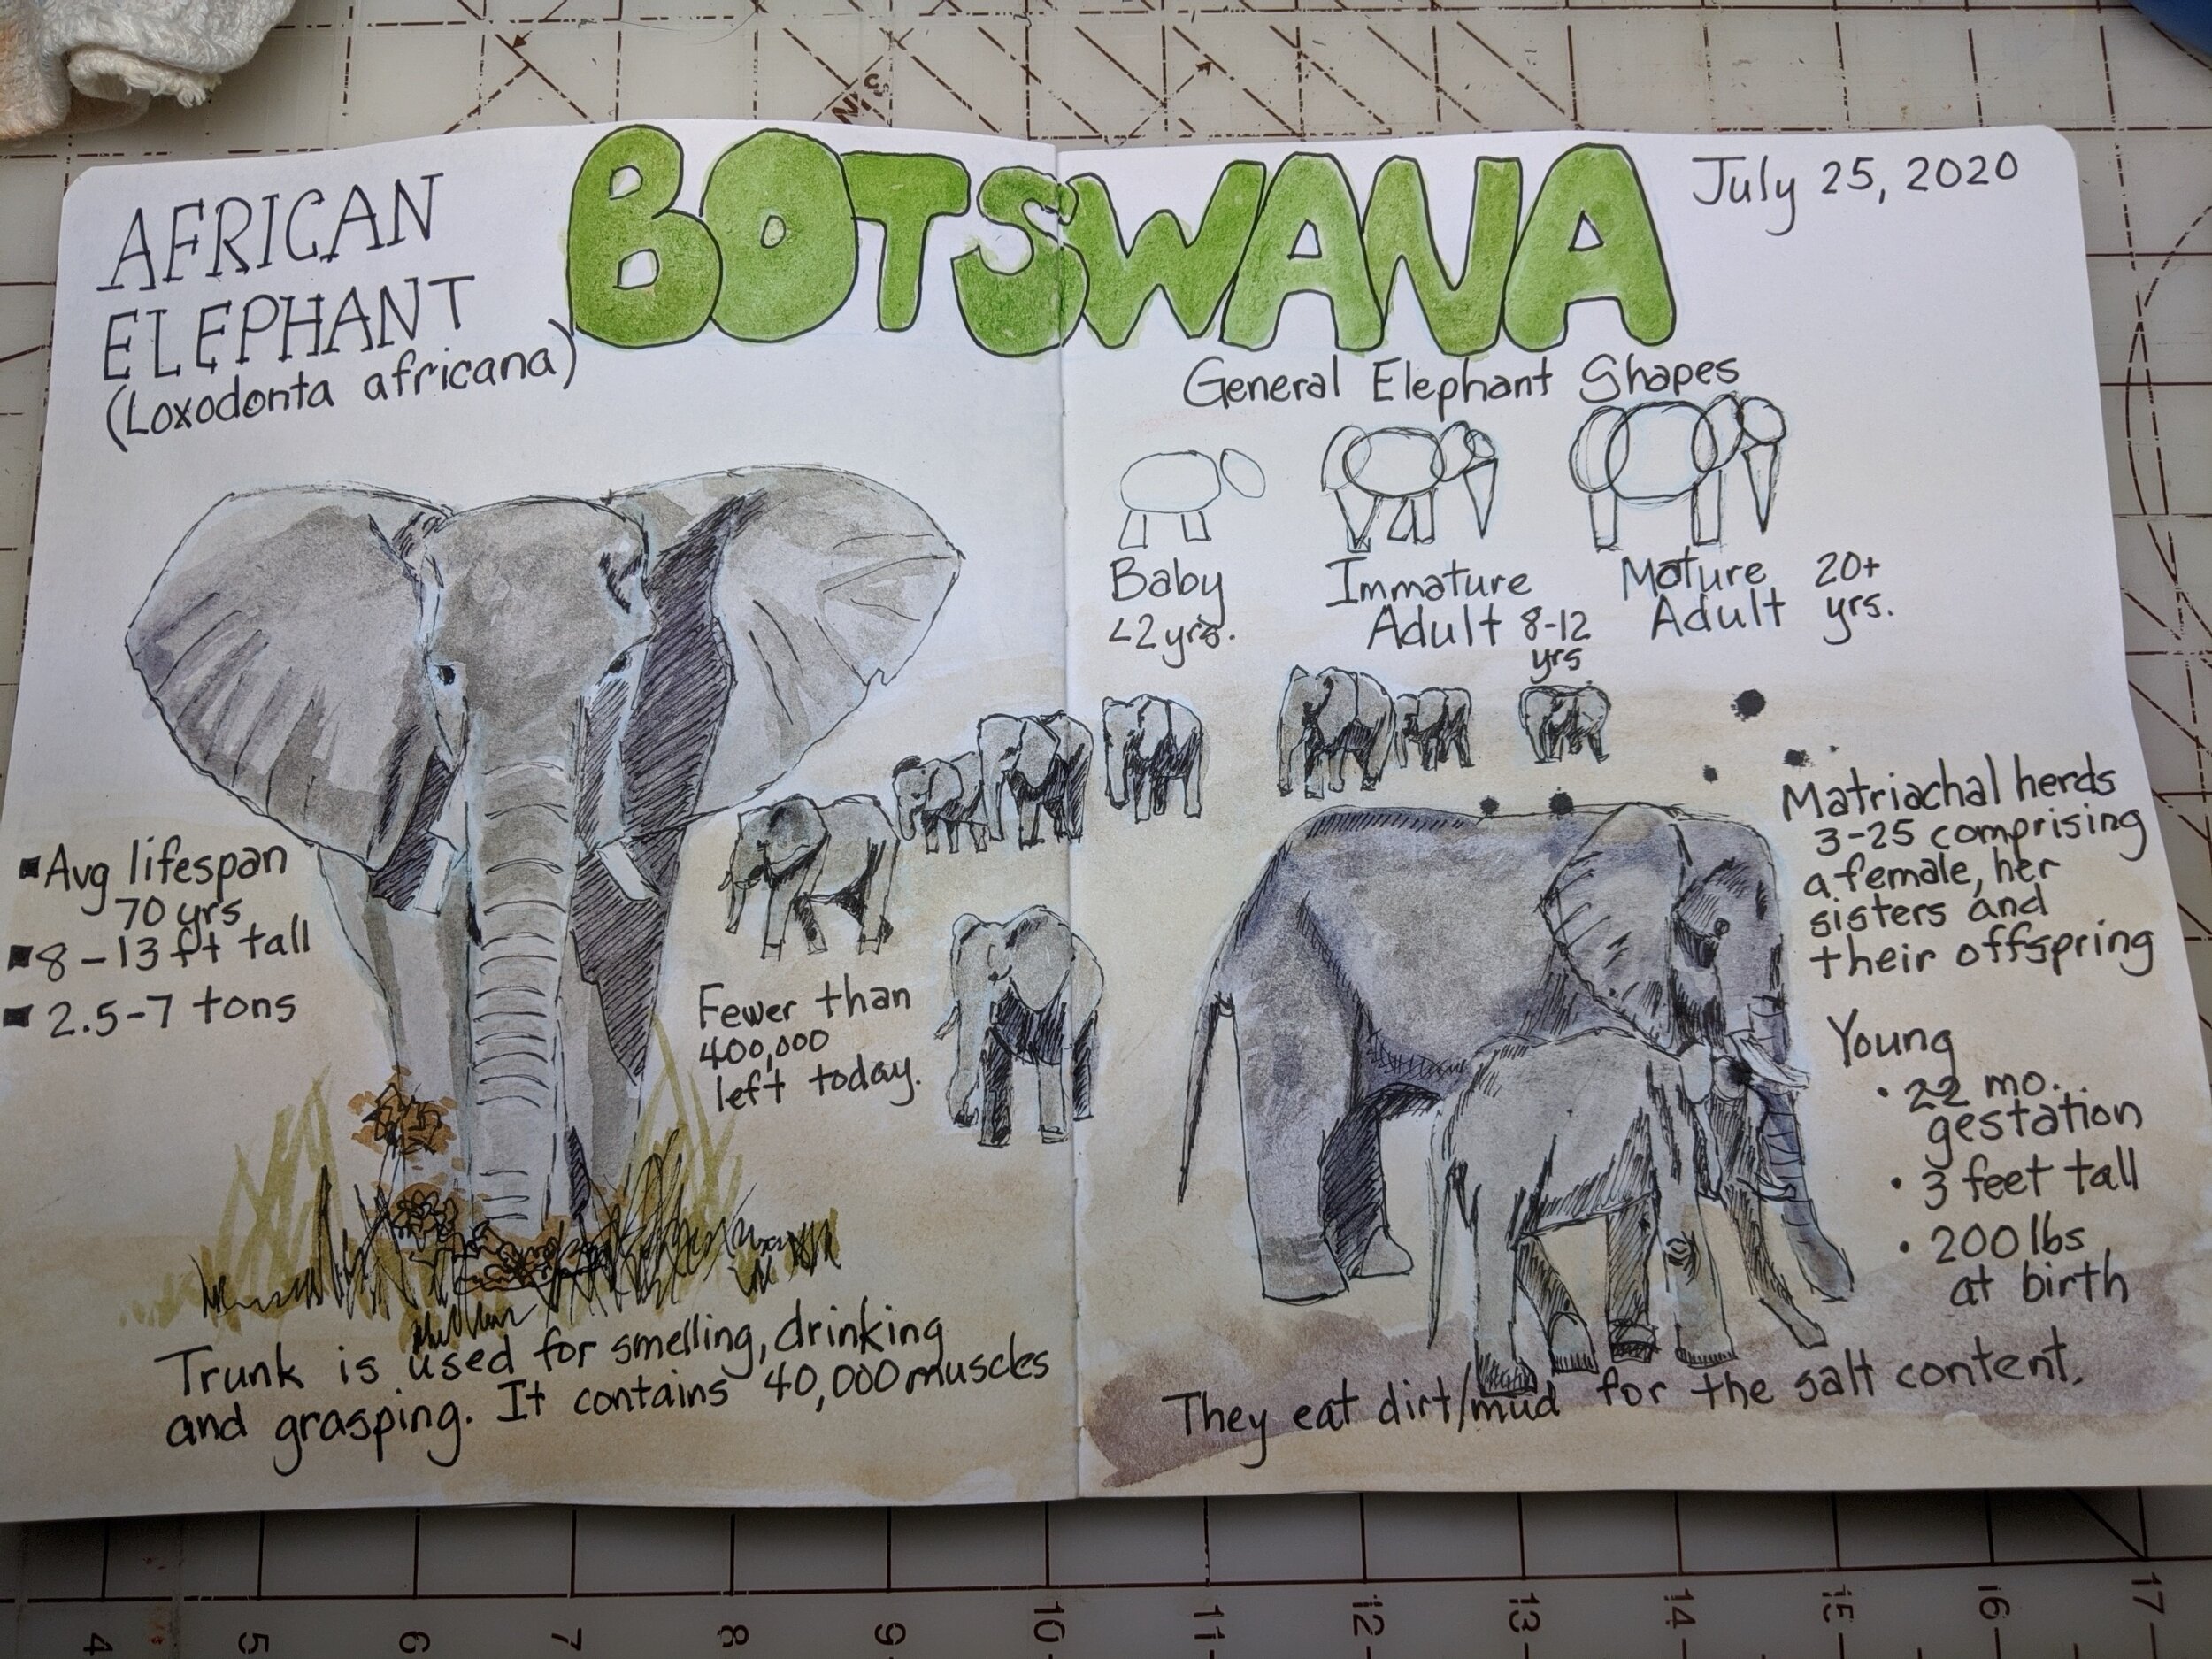 AFRICAN
ELEPHANT
(Loxodonta africana)
BOTSWANA
July 25, 2020
General Elephant Shapes
Baby
<2 yrs.
Immature
Adult 8-12
yrs
Mature 20+
Adult yrs.
Avg lifespan
70 yrs
8-13 ft tall
2.5-7 tons
Fewer than
400,000
left today.
Matriachal herds
3-25 comprising
a female, her
sisters and
their offspring
Young
22 mo.
gestation
3 feet tall
200 lbs
at birth
Trunk is used for smelling, drinking
and grasping. It contains 40,000 muscles
They eat dirt/mud for the salt content.
4 5 6 7 8 9 10 11 12 13 14 15 16 17